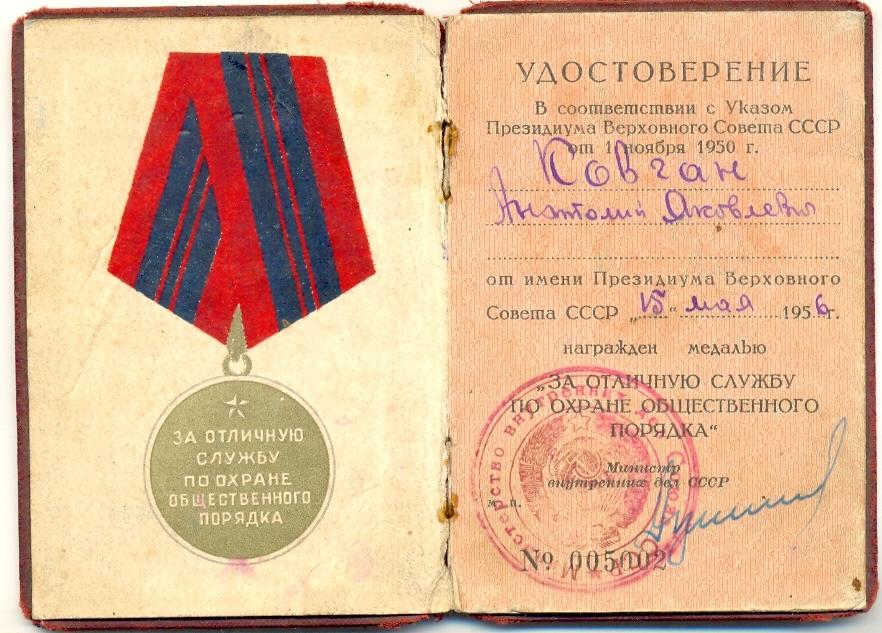 ЗА ОТЛИЧНУЮ
СЛУЖБУ
ПО ОХРАНЕ
ОБЩЕСТВЕННОГО
ПОРЯДКА
УДОСТОВЕРЕНИЕ
В соответствии с Указом
Президиума Верховного Совета СССР
от 1 ноября 1950 г.
Ковган
Анатолий Яковлевич
от имени Президиума Верховного
Совета СССР „15“ мая 1956 г.
награжден медалью
„ЗА ОТЛИЧНУЮ СЛУЖБУ
ПО ОХРАНЕ ОБЩЕСТВЕННОГО
ПОРЯДКА“
Министр
внутренних дел СССР
м. п.
№ 005002